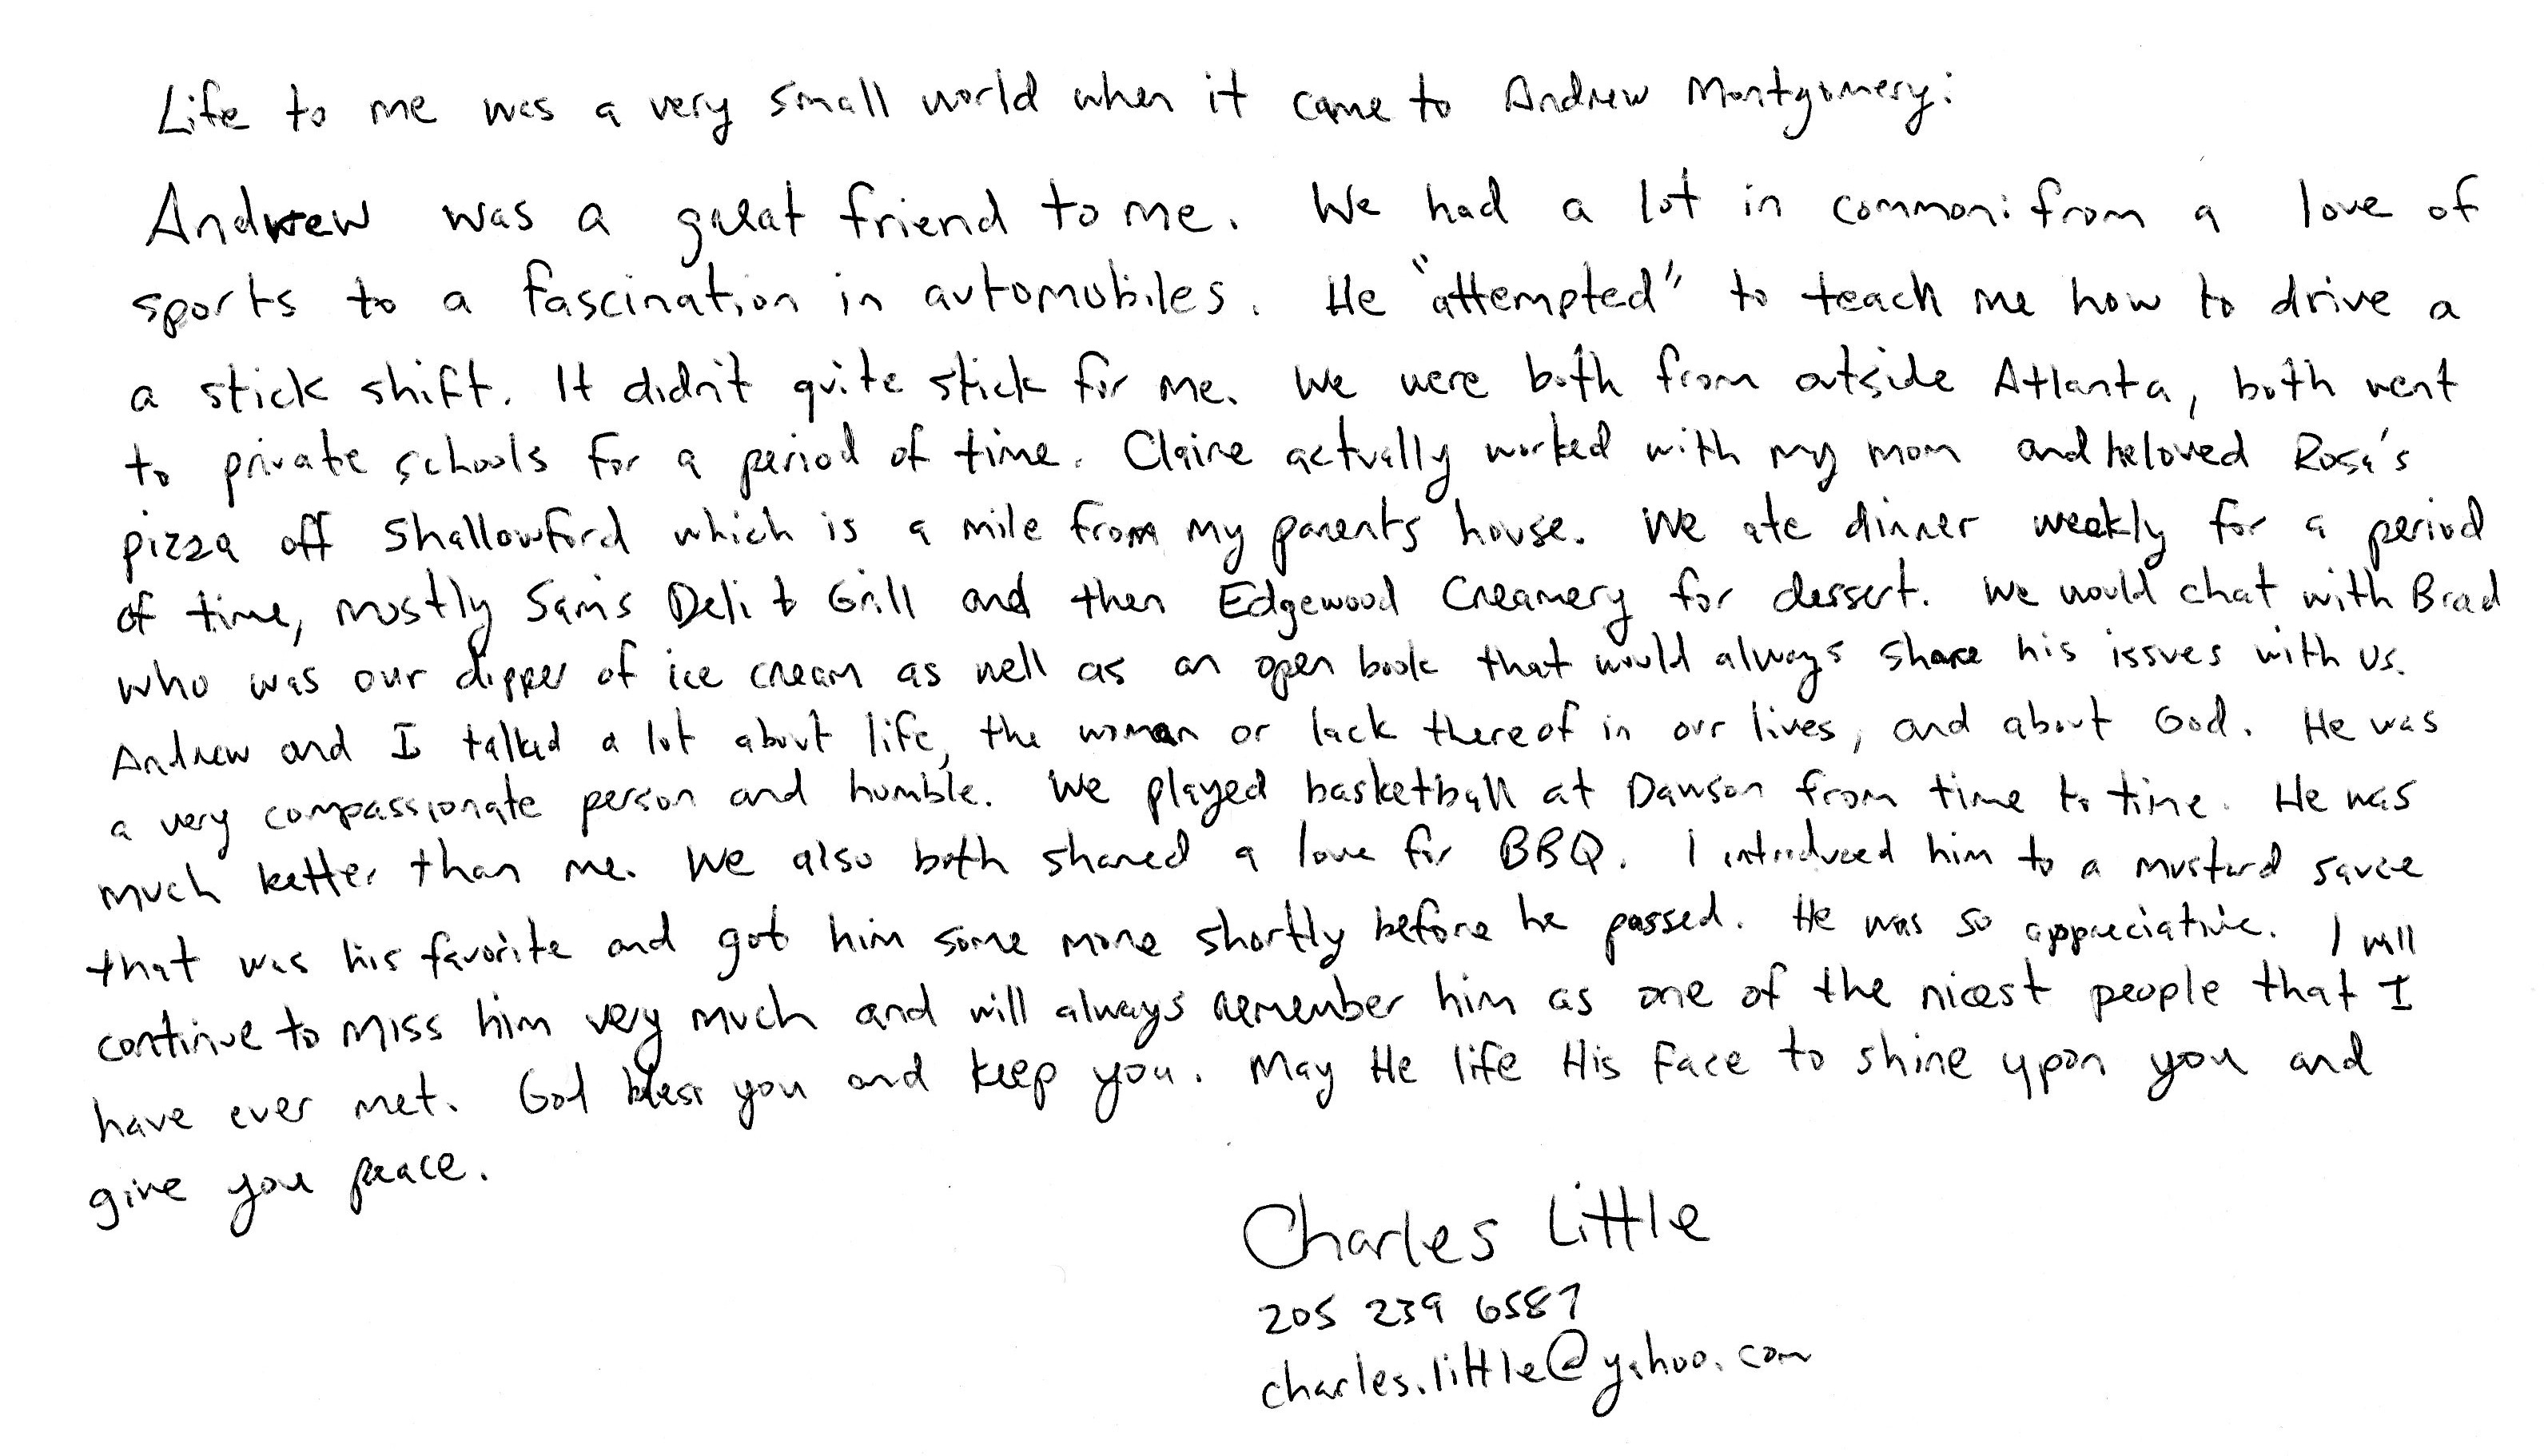 Life to me was a very small world when it came to Andrew Montgomery:
Andrew was a great friend to me. We had a lot in common: from a love of
sports to a fascination in automobiles. He "attempted" to teach me how to drive a
a stick shift. It didn't quite stick for me. We were both from outside Atlanta, both went
to private schools for a period of time. Claire actually worked with my mom and beloved Rosa's
pizza off Shallowford which is a mile from my parents house. We ate dinner weekly for a period
of time, mostly Sam's Deli & Grill and then Edgewood Creamery for dessert. We would chat with Brad
who was our dipper of ice cream as well as an open book that would always share his issues with us.
Andrew and I talked a lot about life, the woman or lack thereof in our lives, and about God. He was
a very compassionate person and humble. We played basketball at Dawson from time to time. He was
much better than me. We also both shared a love for BBQ. I introduced him to a mustard sauce
that was his favorite and got him some more shortly before he passed. He was so appreciative. I will
continue to miss him very much and will always remember him as one of the nicest people that I
have ever met. God bless you and keep you. May He life His face to shine upon you and
give you peace.
Charles Little
205 239 6587
charles.little@yahoo.com